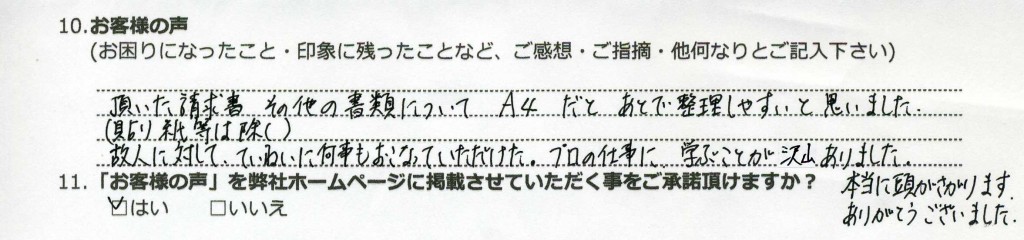 10.お客様の声
(お困りになったこと・印象に残ったことなど、ご感想・ご指摘・他何なりとご記入下さい)
頂いた請求書 その他の書類について A4 だと あとで整理しやすいと思いました.
(貼り紙等は除く)
故人に対して、ていねいに何事もおこなっていただけた。プロの仕事に 学ぶことが沢山ありました。
11.「お客様の声」を弊社ホームページに掲載させていただく事をご承諾頂けますか?
☑はい □いいえ
本当に頭がさがります.
ありがとうございました.